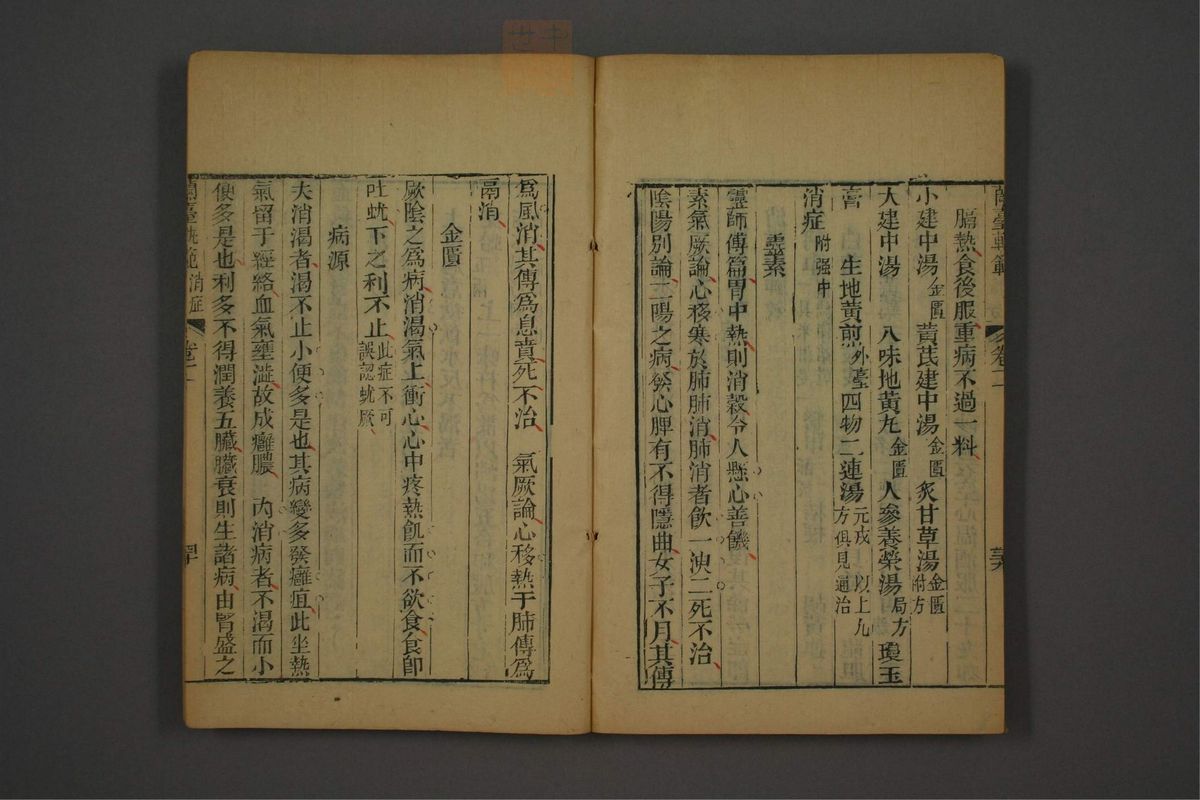 蘭臺軌範 卷二
膈熱食後服重病不過一料
小建中湯金匱黃芪建中湯金匱炙甘草湯金匱附方
大建中湯 八味地黃丸金匱人參養榮湯局方瓊玉
膏 生地黃煎外臺四物二連湯元戎 以上九方俱見通治
消症附强中
靈素
靈師傅篇胃中熱則消穀令人懸心善饑
素氣厥論心移寒於肺肺消肺消者飲一溲二死不治
陰陽別論二陽之病發心脾有不得隱曲女子不月其傳
爲風消其傳爲息賁死不治 氣厥論心移熱于肺傳爲
鬲消
金匱
厥陰之爲病消渴氣上衝心心中疼熱飢而不欲食食卽
吐蚘下之利不止此症不可誤認蚘厥
病源
夫消渴者渴不止小便多是也其病變多發癰疽此坐熱
氣留于經絡血氣壅澁故成癰膿 內消病者不渴而小
便多是也利多不得潤養五臟臟衰則生諸病由腎盛之
蘭臺軌範 消症 卷二